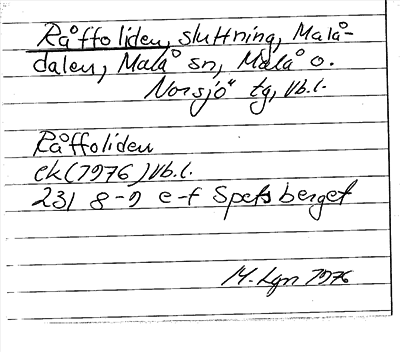 Råffoliden, sluttning, Malå-
dalen, Malå sn, Malå o.
Norsjö tg, Vb.l.
Råffoliden
ek(1976) Vb.l.
231 8-9 e-f Spetsberget
M. Lgn 1976